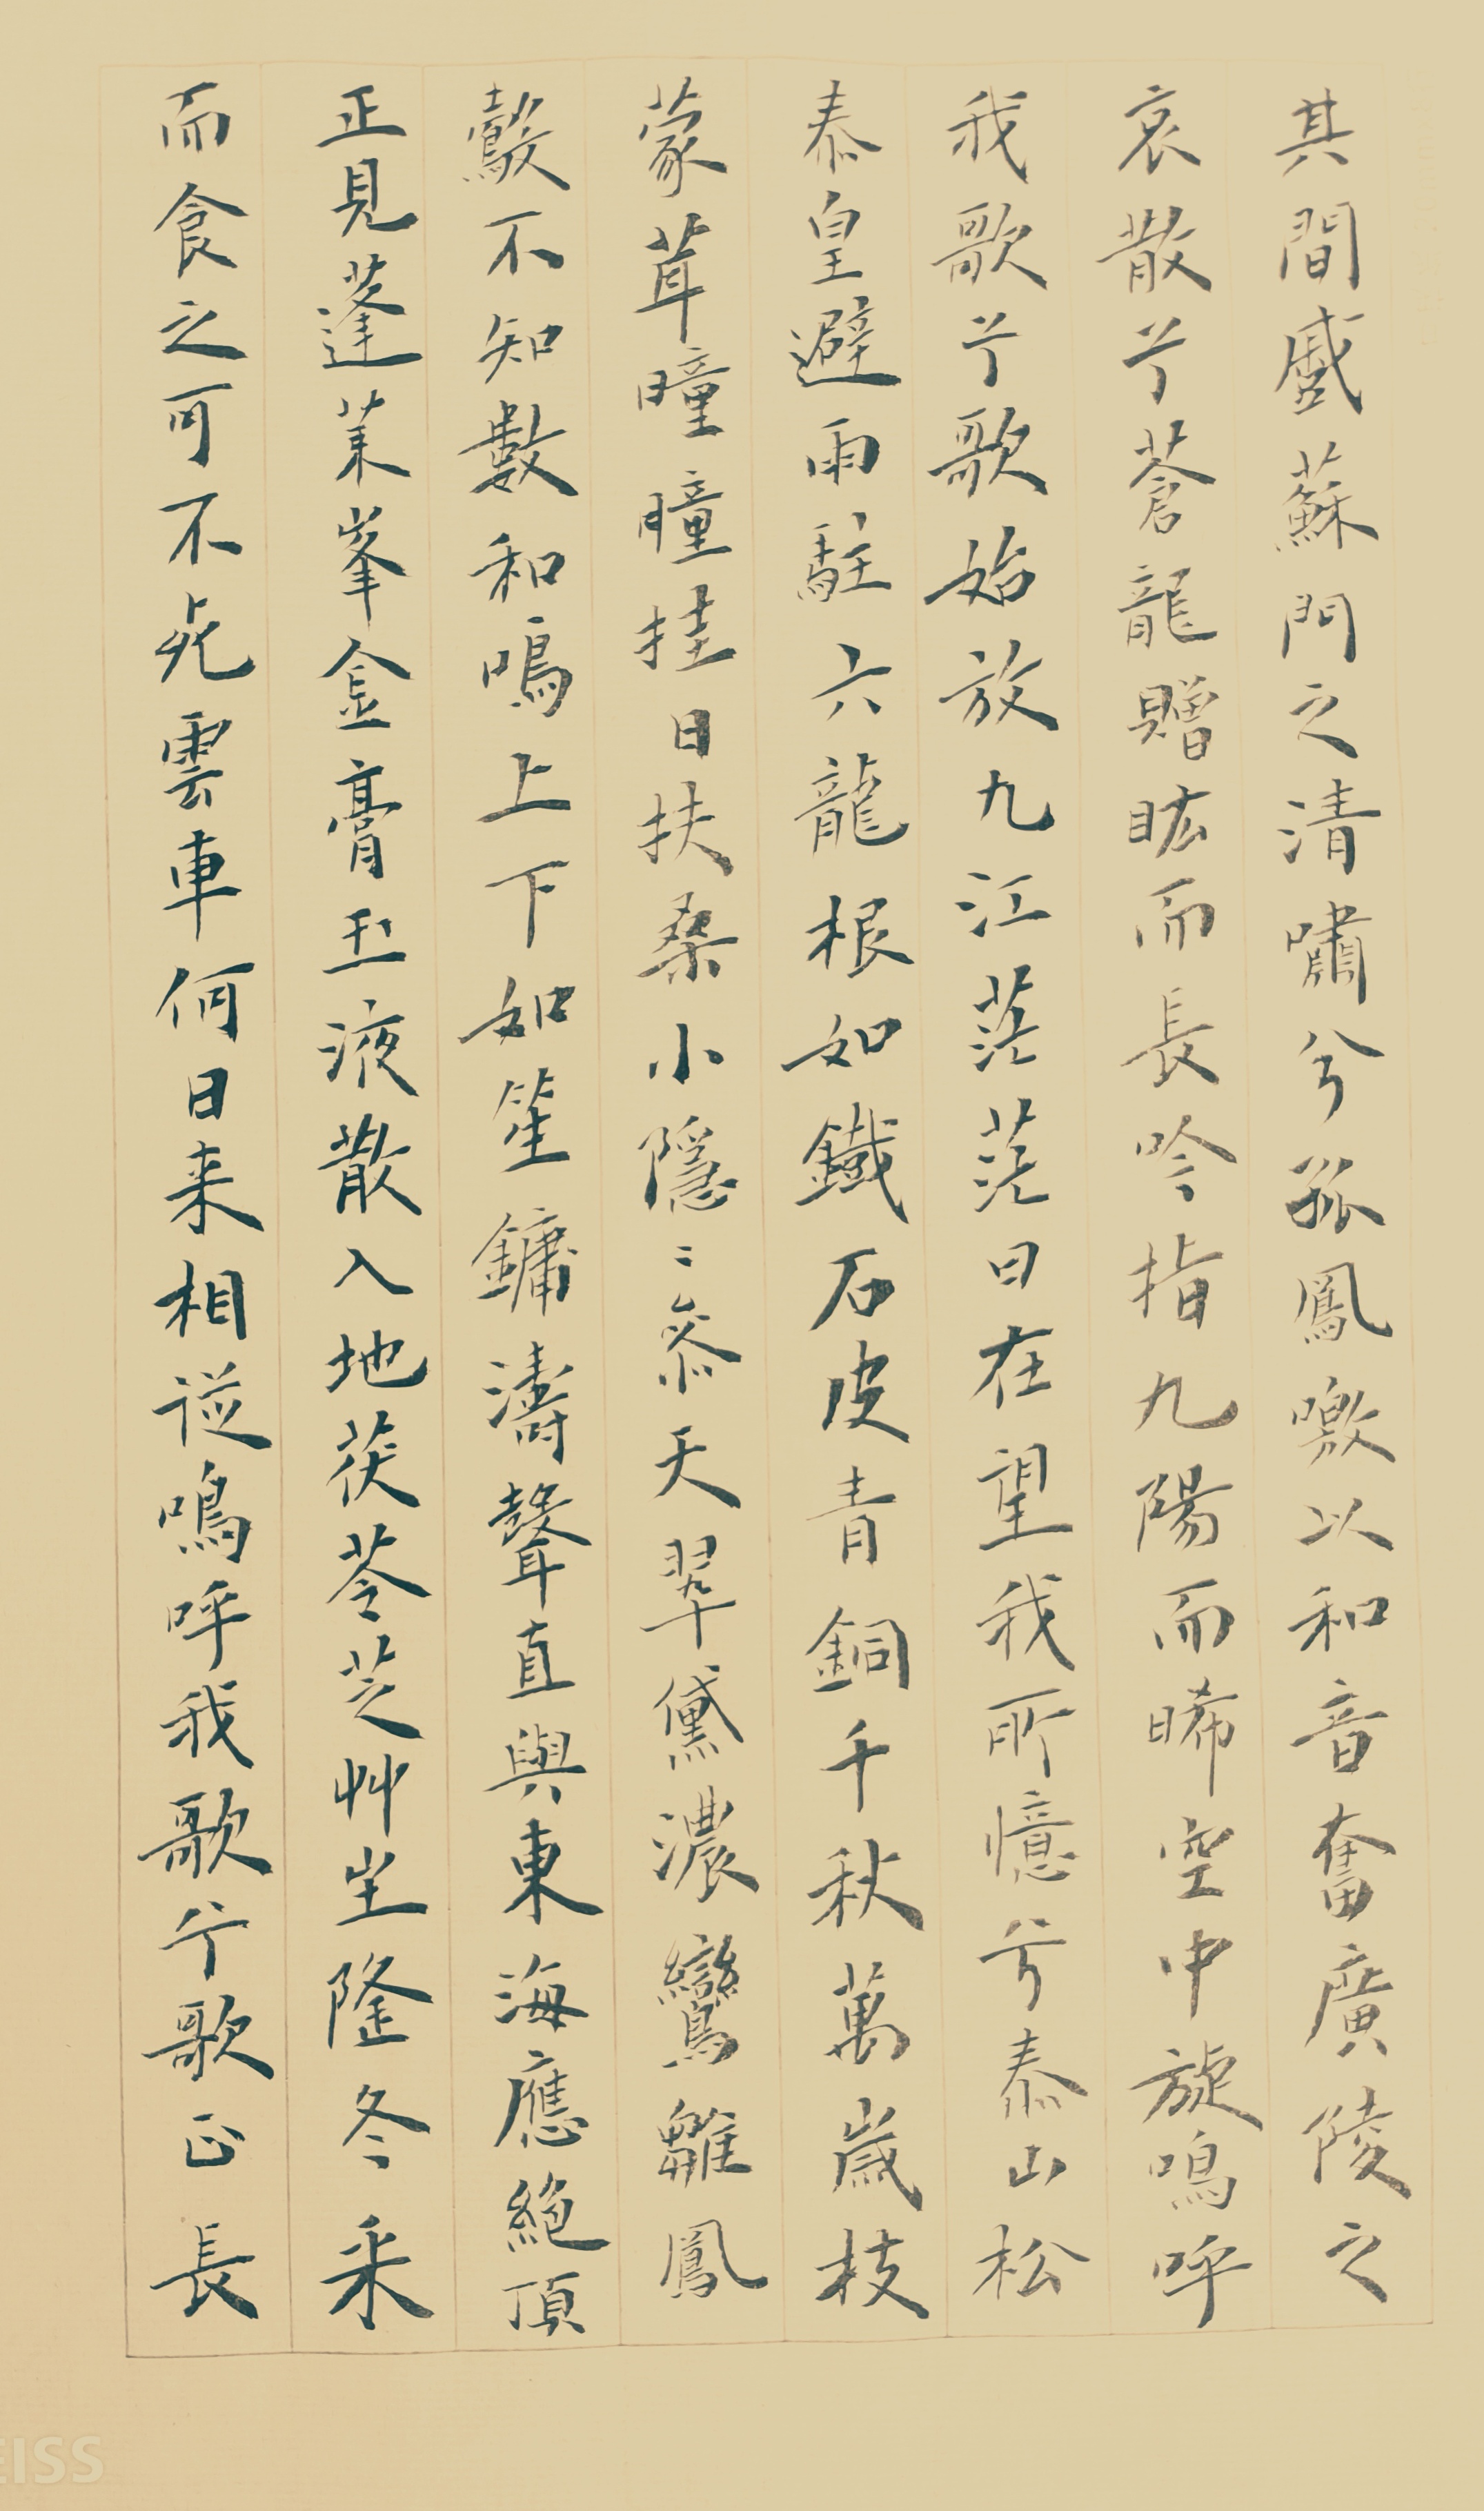 其間感蘇門之清嘯兮孤鳳噭以和音奮廣陵之
哀散兮蒼龍贈眩而長吟指九陽而晞空中旋鳴呼
我歌兮歌始放九江茫茫日在望我所憶兮泰山松
泰皇避雨駐六龍根如鐵石皮青銅千秋萬歲枝
蒙茸曈曈挂日扶桑小隱〻參天翠黛濃鸞雛鳳
鷇不知數和鳴上下如笙鏞濤聲直與東海應絕頂
正見蓬萊峯金膏玉液散入地茯苓芝艸坐隆冬采
而食之可不死雲車何日来相從鳴呼我歌兮歌正長
EISS